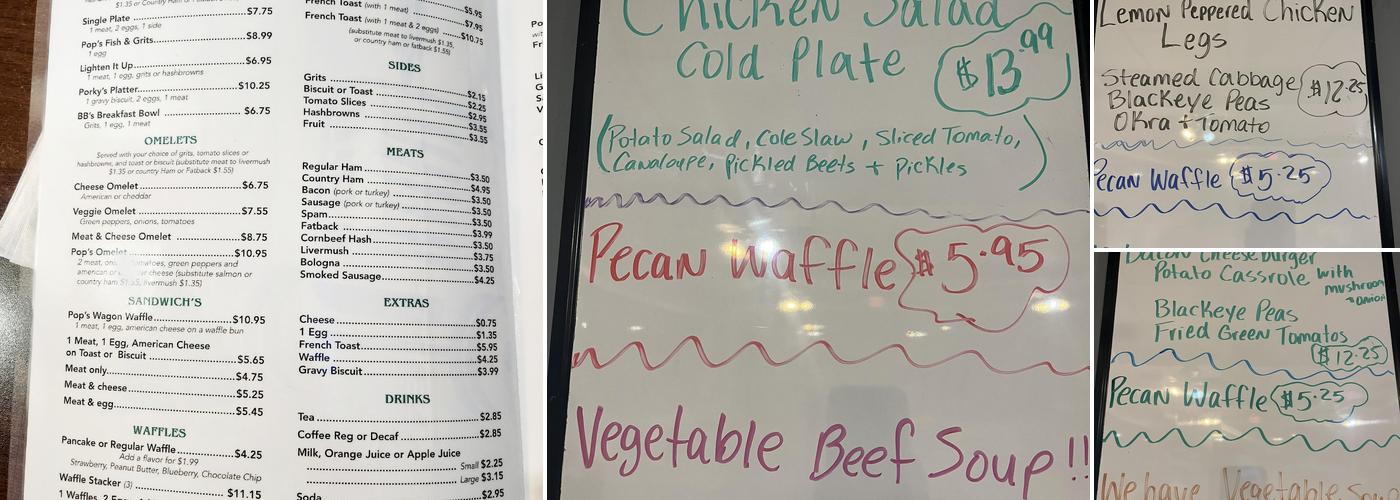 $1.35 or Country Ham or Fatback $1.55)
Single Plate $7.75
1 meat, 2 eggs, 1 side
Pop's Fish & Grits $8.99
1 egg
Lighten It Up $6.95
1 meat, 1 egg, grits or hashbrowns
Porky's Platter $10.25
1 gravy biscuit, 2 eggs, 1 meat
BB's Breakfast Bowl $6.75
Grits, 1 egg, 1 meat
OMELETS
Served with your choice of grits, tomato slices or
hashbrowns, and toast or biscuit (substitute meat to livermush
$1.35 or country Ham or Fatback $1.55)
Cheese Omelet $6.75
American or cheddar
Veggie Omelet $7.55
Green peppers, onions, tomatoes
Meat & Cheese Omelet $8.75
Pop's Omelet $10.95
2 meat, tomatoes, green peppers and
american or cheese (substitute salmon or
country ham $1.55, livermush $1.35)
SANDWICH'S
Pop's Wagon Waffle $10.95
1 meat, 1 egg, american cheese on a waffle bun
1 Meat, 1 Egg, American Cheese
on Toast or Biscuit $5.65
Meat only $4.75
Meat & cheese $5.25
Meat & egg $5.45
WAFFLES
Pancake or Regular Waffle $4.25
Add a flavor for $1.99
Strawberry, Peanut Butter, Blueberry, Chocolate Chip
Waffle Stacker (3) $11.15
French Toast (with 1 meat) $7.95
French Toast (with 1 meat & 2 eggs) $10.75
(substitute meat to livermush $1.35,
or country ham or fatback $1.55)
SIDES
Grits $2.15
Biscuit or Toast $2.25
Tomato Slices $2.95
Hashbrowns $3.55
Fruit $3.55
MEATS
Regular Ham $3.50
Country Ham $4.95
Bacon (pork or turkey) $3.50
Sausage (pork or turkey) $3.50
Spam $3.50
Fatback $3.99
Cornbeef Hash $3.50
Livermush $3.75
Bologna $3.50
Smoked Sausage $4.25
EXTRAS
Cheese $0.75
1 Egg $1.35
French Toast $5.95
Waffle $4.25
Gravy Biscuit $3.99
DRINKS
Tea $2.85
Coffee Reg or Decaf $2.85
Milk, Orange Juice or Apple Juice
Small $2.25
Large $3.15
Soda $2.95
Chicken Salad
Cold Plate $13.99
(Potato Salad, Cole Slaw, Sliced Tomato,
Canaloupe, Pickled Beets + Pickles)
Pecan Waffle $5.95
Vegetable Beef Soup!!
Lemon Peppered Chicken
Legs
Steamed Cabbage $12.25
Blackeye Peas
Okra + Tomato
Pecan Waffle $5.25
Bacon Cheeseburger
Potato Cassrole with
mushroom
+ onion
Blackeye Peas
Fried Green Tomatos
$12.25
Pecan Waffle $5.25
We have Vegetable Soup